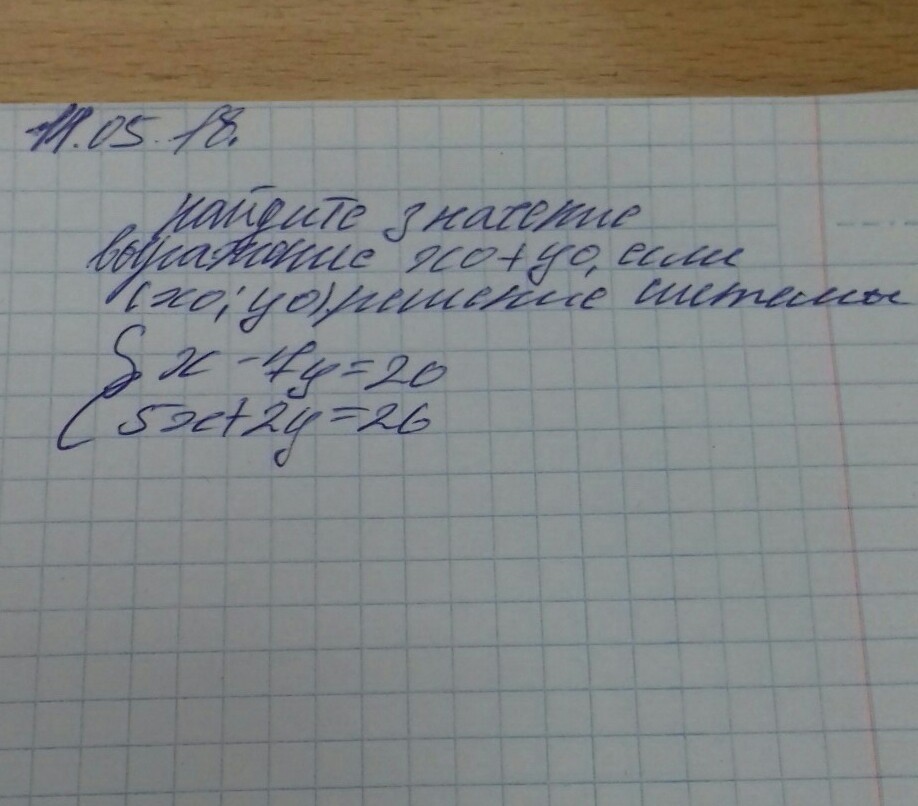 11.05.18.
найдите значение
выражение x0+y0, если
(x0; y0).решение системы
{ x - 4y = 20
5x + 2y = 26